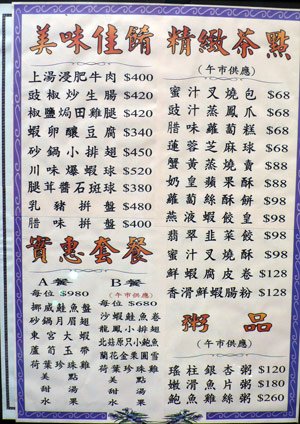 美味佳餚
上湯浸肥牛肉 $400
豉椒炒生腸 $420
椒鹽焗田雞腿 $420
蝦卵釀豆腐 $340
砂鍋小排翅 $450
川味爆蝦球 $520
腿茸醬石斑球 $380
乳豬拼盤 $480
腊味拼盤 $400
實惠套餐
A餐
每位 $980
挪威鮭魚盤
砂鍋月眉翅
東宮大蝦
蘆筍玉帶
荷葉珍珠雞
美點
甜湯
水果
B餐
(午市供應)
每位 $680
沙蝦鮭魚卷
龍鳳小排翅
北菇原只小鮑魚
蘭花金菓圓雪
荷葉珍珠雞
美點
甜湯
水果
精緻茶點
(午市供應)
蜜汁叉燒包 $68
豉汁蒸鳳爪 $68
腊味蘿蔔糕 $68
蓮蓉芝麻球 $68
蟹黃蒸燒賣 $88
奶皇蘋果酥 $88
蘿蔔絲酥餅 $98
燕液蝦餃皇 $98
翡翠韭菜餃 $98
蜜汁叉燒酥 $98
鮮蝦腐皮卷 $128
香滑鮮蝦腸粉 $128
粥品
(午市供應)
瑤柱銀杏粥 $120
嫩滑魚片粥 $180
鮑魚雞絲粥 $260